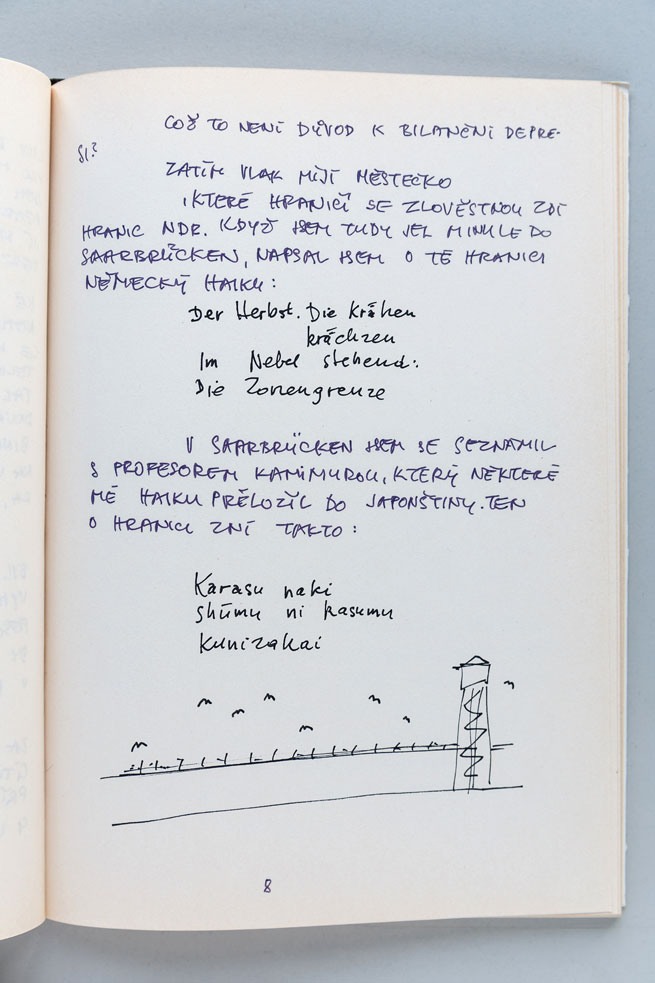 COŽ TO NENÍ DŮVOD K BILANČNÍ DEPRE-
SI?
ZATÍM VLAK MÍJÍ MĚSTEČKO
, KTERÉ HRANIČÍ SE ZLOVĚSTNOU ZDÍ
HRANIC NDR. KDYŽ JSEM TUDY JEL MINULE DO
SAARBRÜCKEN, NAPSAL JSEM O TÉ HRANICI
NĚMECKÝ HAIKU:
Der Herbst. Die Krähen
krächzen
Im Nebel stehend:
Die Zonengrenze
V SAARBRÜCKEN JSEM SE SEZNÁMIL
S PROFESOREM KAMIMUROU, KTERÝ NĚKTERÉ
MÉ HAIKU PŘELOŽIL DO JAPONŠTINY. TEN
O HRANICI ZNÍ TAKTO:
Karasu naki
shūmu ni kasumu
Kunizakai
8